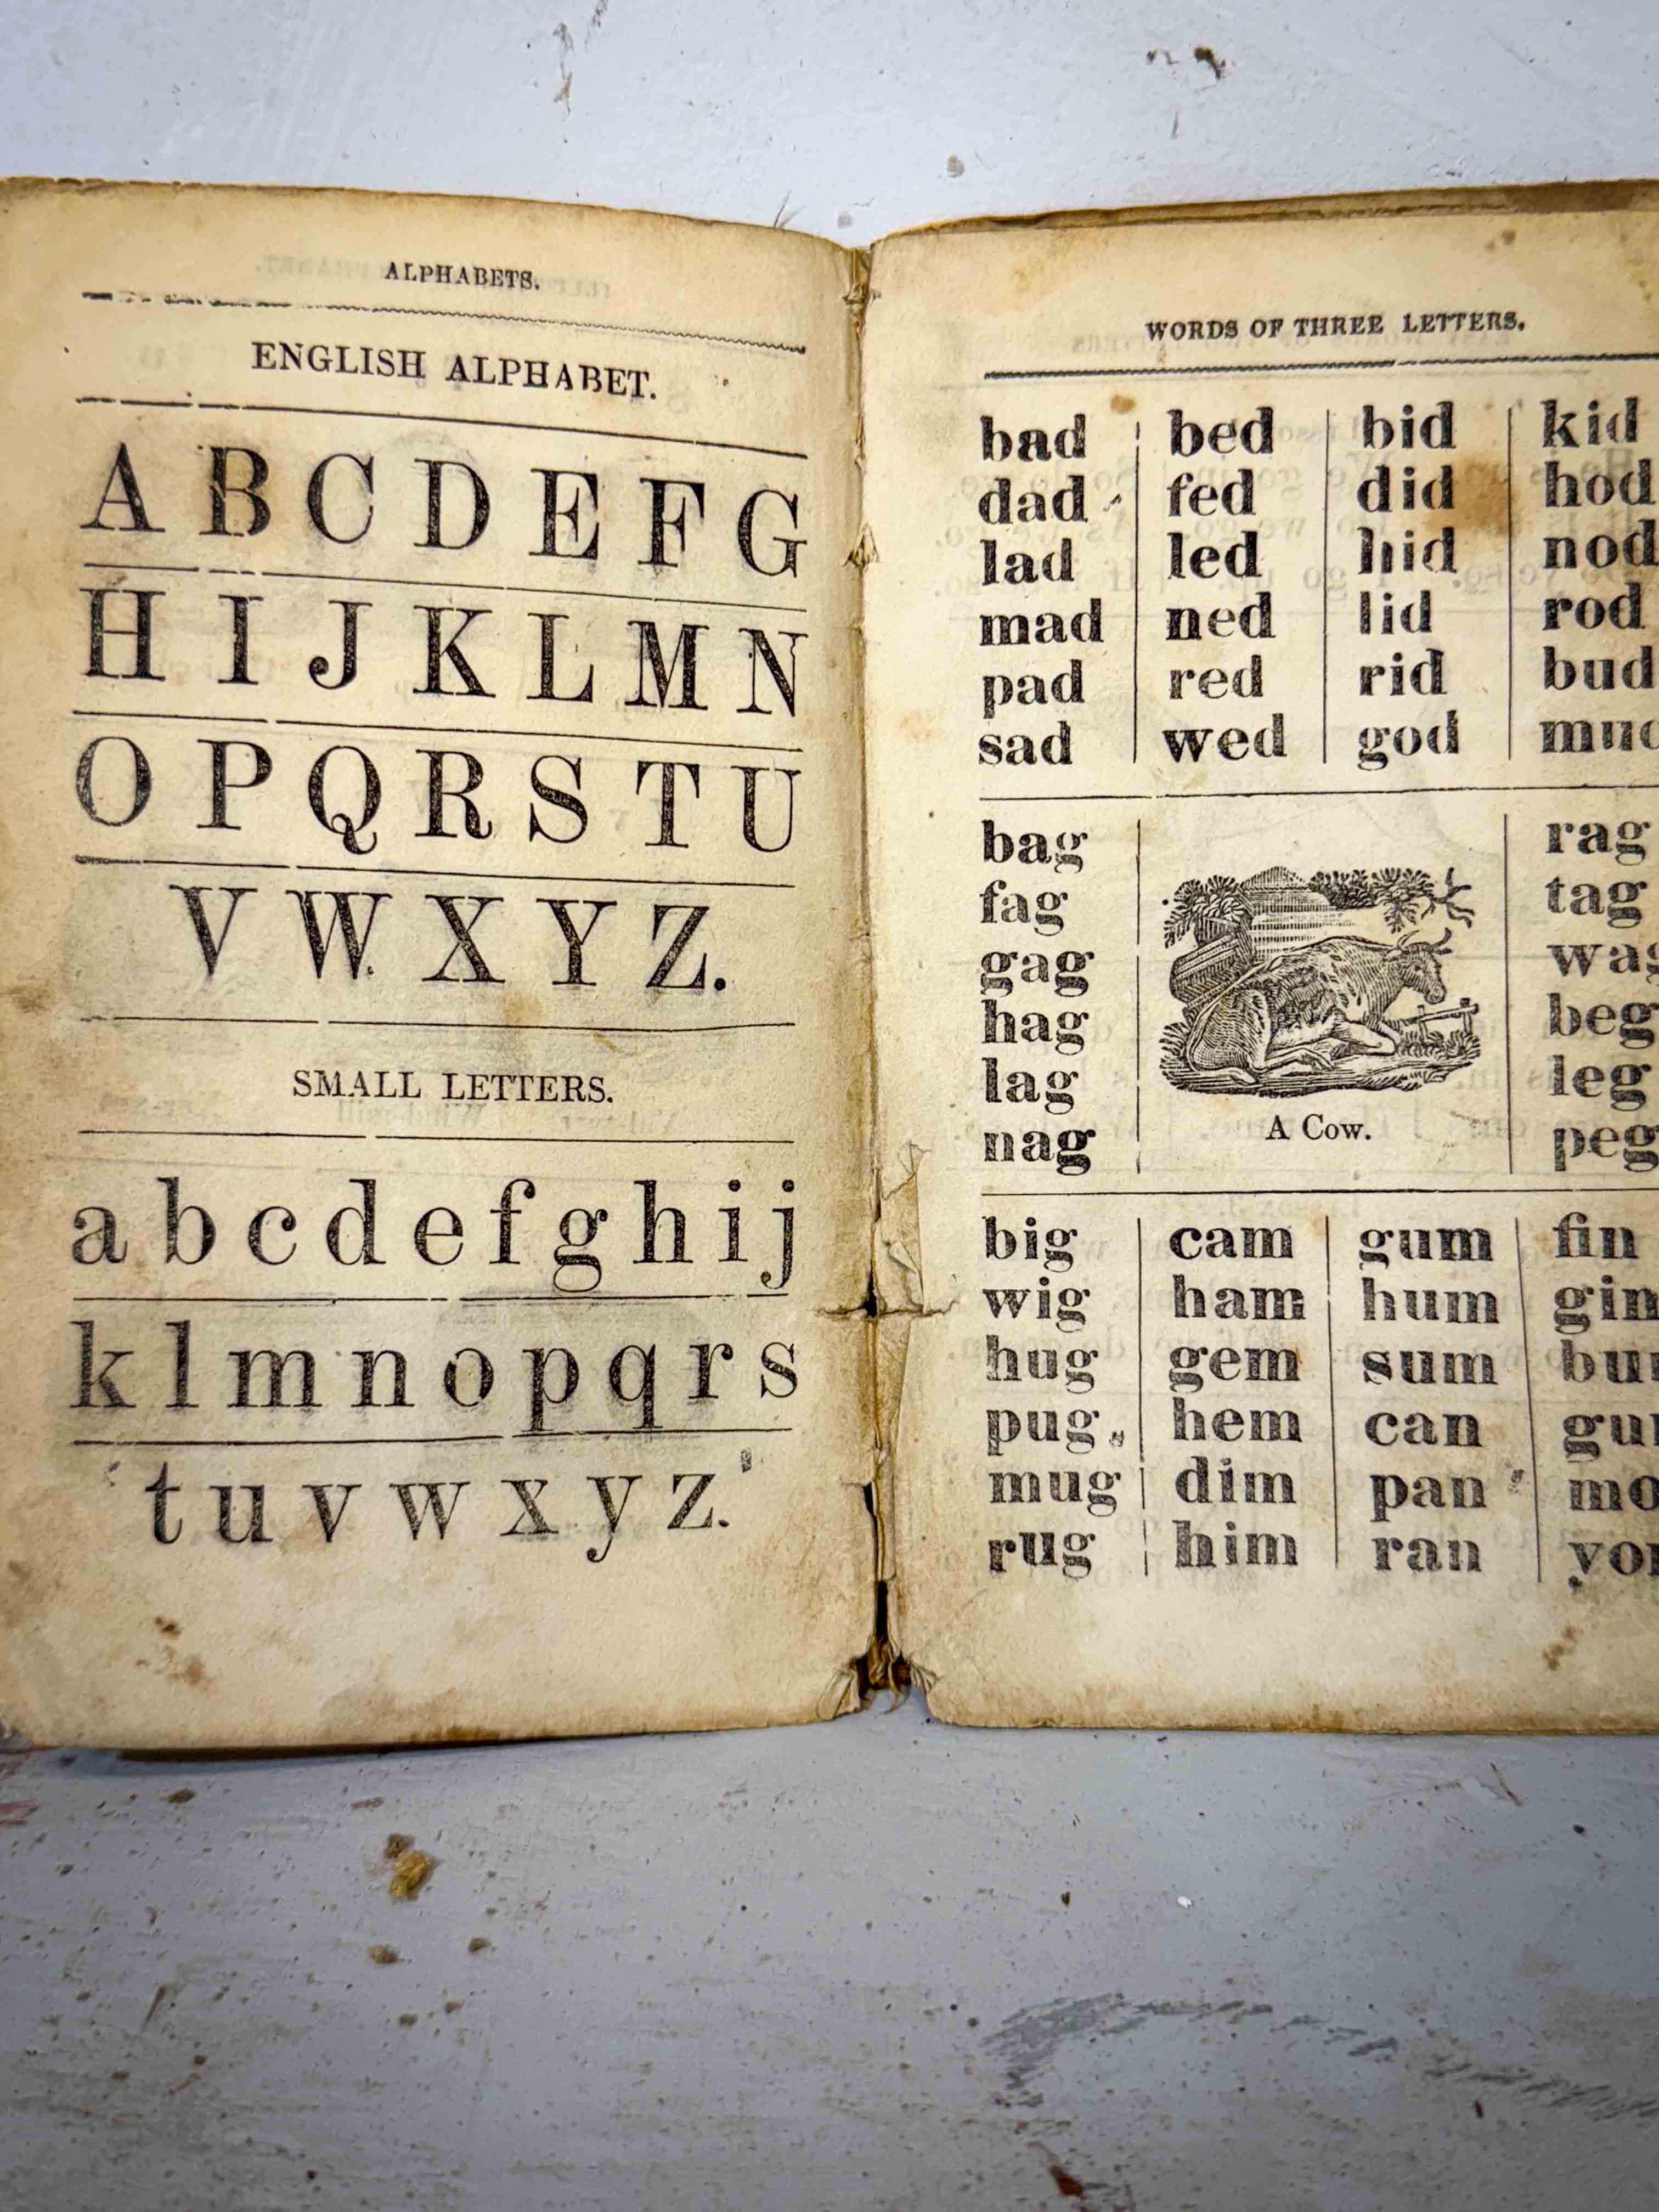 ALPHABETS.
ENGLISH ALPHABET.
A B C D E F G
H I J K L M N
O P Q R S T U
V W X Y Z.
SMALL LETTERS.
a b c d e f g h i j
k l m n o p q r s
t u v w x y z.
WORDS OF THREE LETTERS.
bad bed bid kid
dad fed did hod
lad led hid nod
mad ned lid rod
pad red rid bud
sad wed god
bag rag
fag tag
gag
hag beg
lag leg
nag peg
A Cow.
big cam gum fin
wig ham hum gin
hug gem sum
pug hem can
mug dim pan
rug him ran